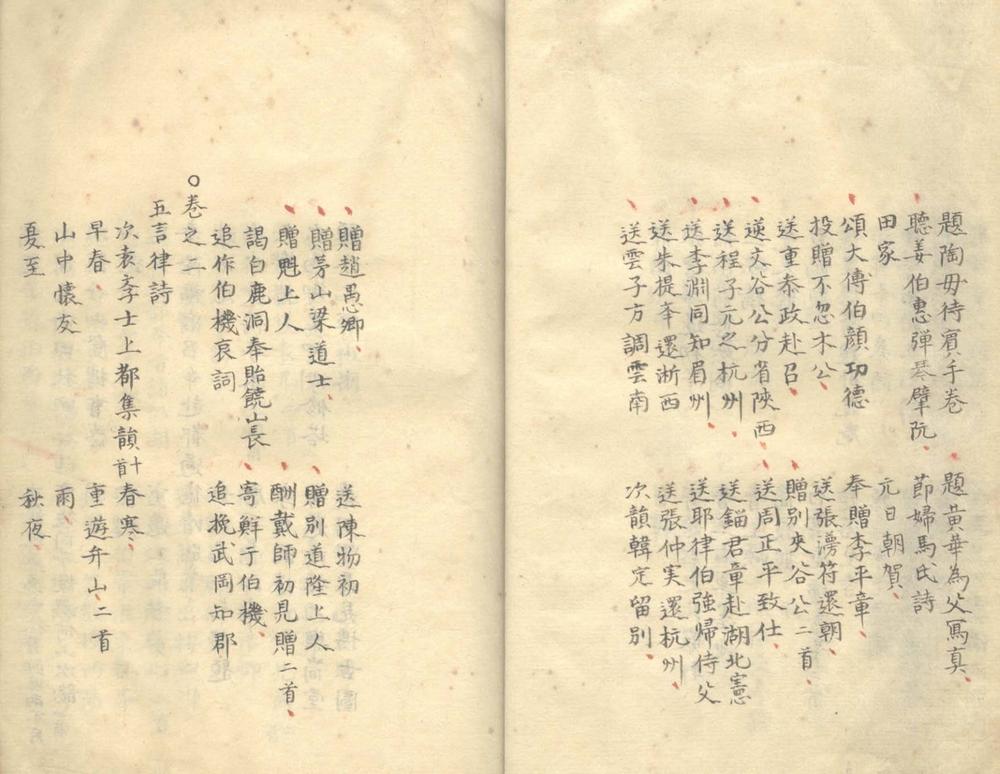 題陶毋待賔手卷 題黃華為父寫真
聽姜伯惠彈琴擘阮 節婦馬氏詩
田家 元日朝賀
頌大傅伯顏功德 奉贈李平章
投贈不忽木公 送張澷符還朝
送重泰政赴召 贈別夾谷公二首
送夾谷公分省陝西 送周正平致仕
送程子元之杭州 送錙君章赴湖北憲
送李淵同知眉州 送耶律伯強帰侍父
送朱提夆還浙西 送張仲実還杭州
送雲子方調雲南 次韻韓定留別
贈趙愚卿 送陳物初
贈茅山梁道士 贈別道隆上人
贈魁上人 酬戴師初見贈二首
謁白鹿洞奉貽饒山長 寄鮮于伯機
追作伯機哀詞 追挽武岡知郡
○卷之二
五言律詩
次袁李士上都集韻十首 春寒
早春 重遊弁山二首
山中懷友 雨
夏至 秋夜